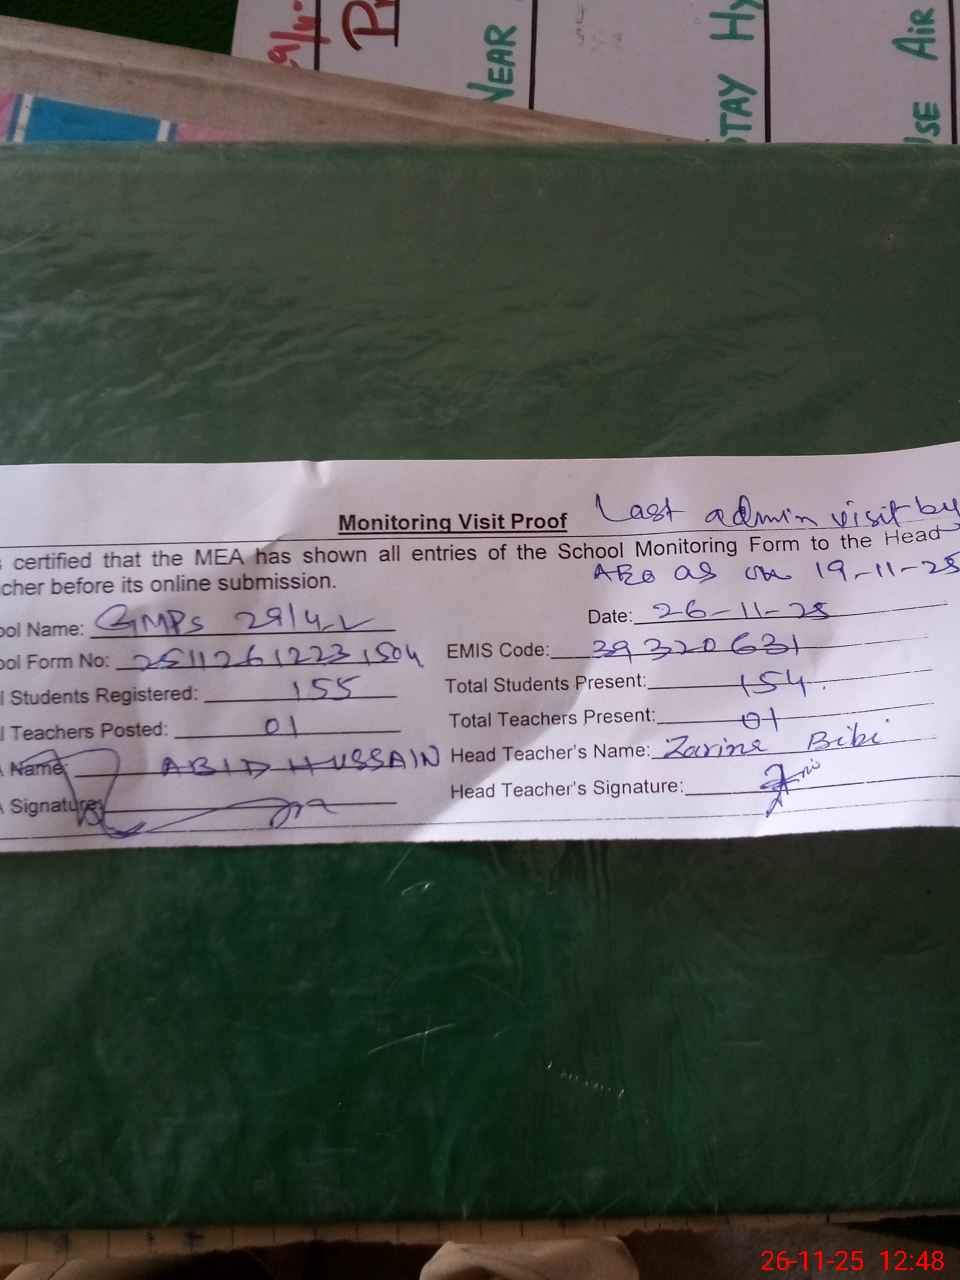 NEAR
STAY HY
USE AIR
Monitoring Visit Proof
Last admin visit by
certified that the MEA has shown all entries of the School Monitoring Form to the Head
cher before its online submission.
AEO as on 19-11-25
ool Name: GMPS 29/4-L
Date: 26-11-25
ool Form No: 25112612231504
EMIS Code: 39320631
l Students Registered: 155
Total Students Present: 154
l Teachers Posted: 01
Total Teachers Present: 01
Name ABID HUSSAIN
Head Teacher's Name: Zarina Bibi
Signature
Head Teacher's Signature:
26-11-25 12:48